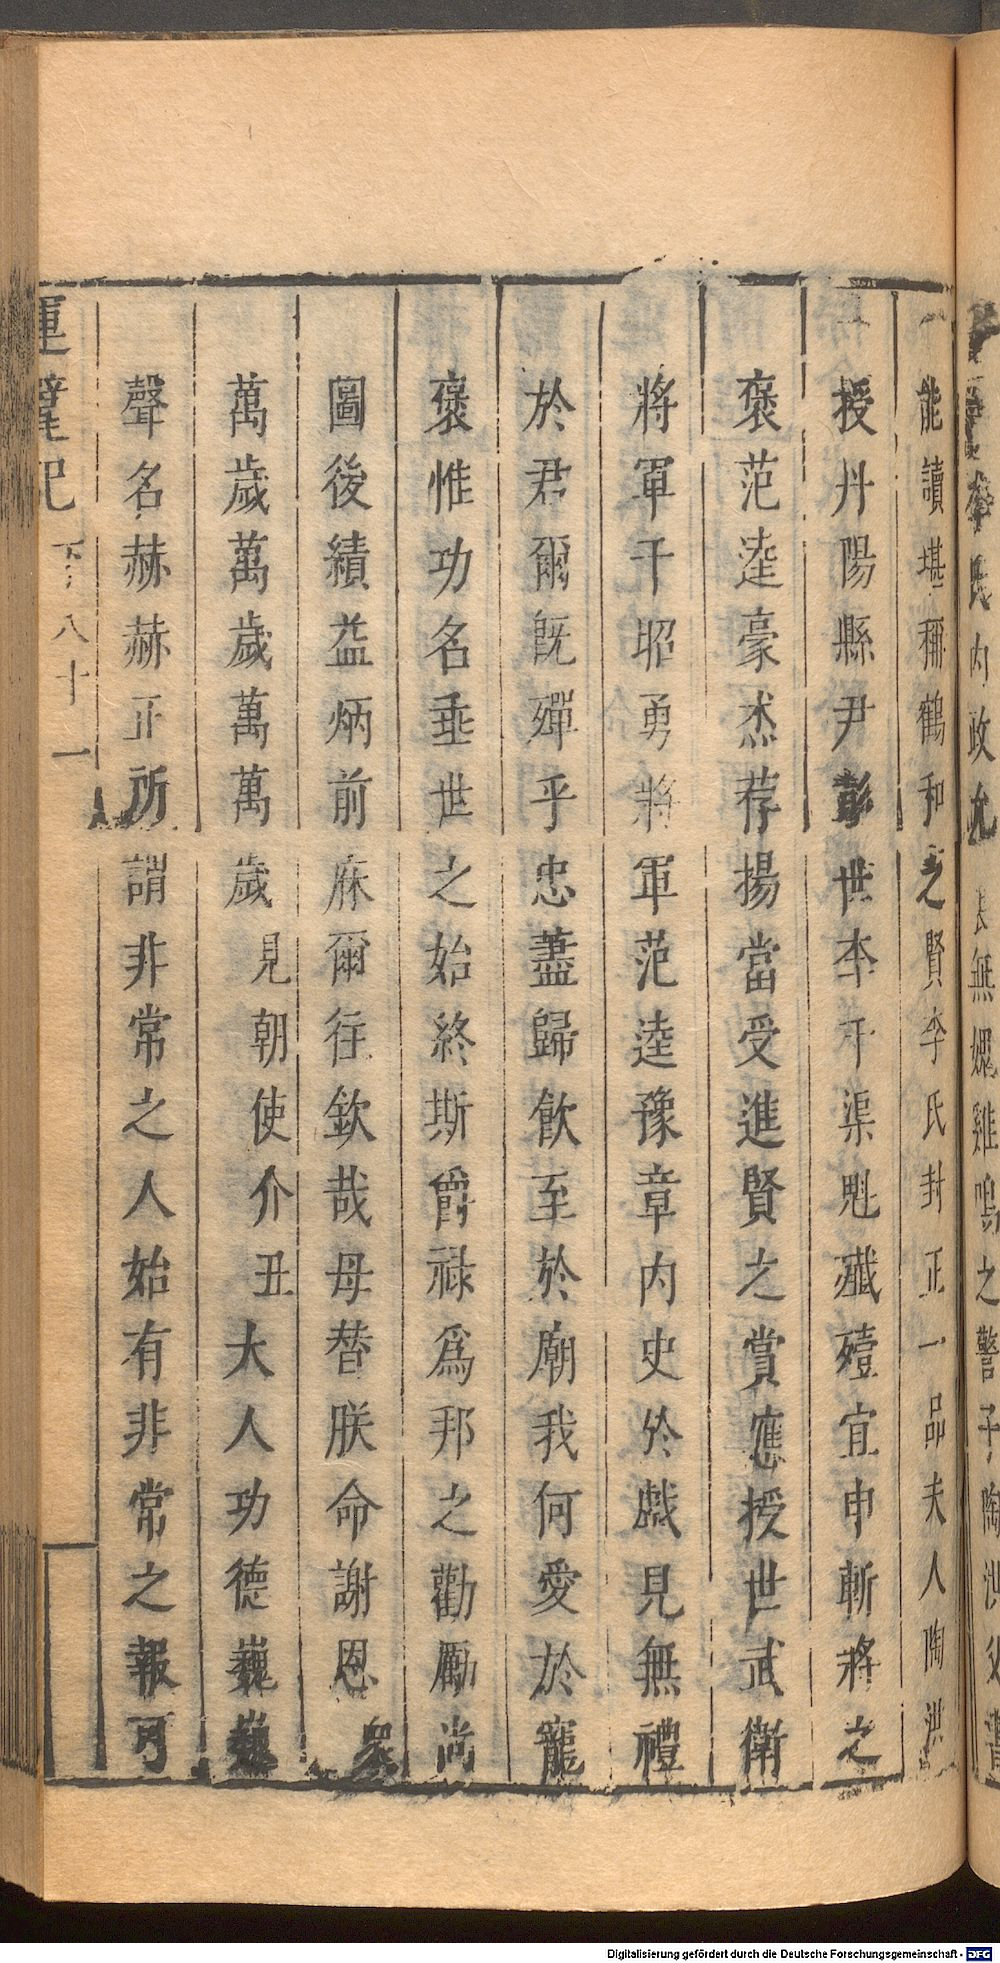 李氏內政允 無媿雞鳴之警子陶洪
能讀堪稱鶴和之賢李氏封正一品夫人陶洪
授丹陽縣尹彭世李于渠魁殲殪宜申斬將之
褒范逵豪杰荐揚當受進賢之賞應授世武衛
將軍干昭勇將軍范逵豫章內史於戲見無禮
於君爾既殫乎忠藎歸飲至於廟我何愛於寵
褒惟功名垂世之始終斯爵祿爲邦之勸勵尚
圖後績益炳前庥爾往欽哉毋替朕命謝恩 衆
萬歲萬歲萬萬歲見朝使介丑大人功德巍巍
聲名赫赫正所謂非常之人始有非常之報可
運甓記 下 八十一
Digitalisierung gefördert durch die Deutsche Forschungsgemeinschaft - DFG